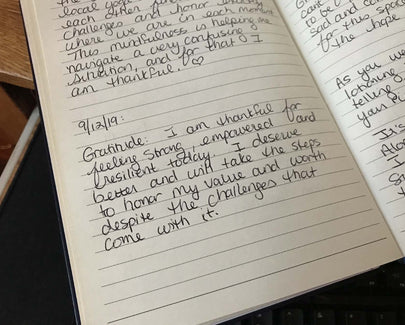 local yoga
each other
challenges and honor
where we are in each
This mindfulness is helping me
navigate a very confusing
situation, and for that I
am thankful. ♡
9/12/19:
Gratitude: I am thankful for
feeling strong, empowered and
resilient today. I deserve
better and will take the steps
to honor my value and worth
despite the challenges that
come with it.
to be
sad and
for this
the hope
As you
telling